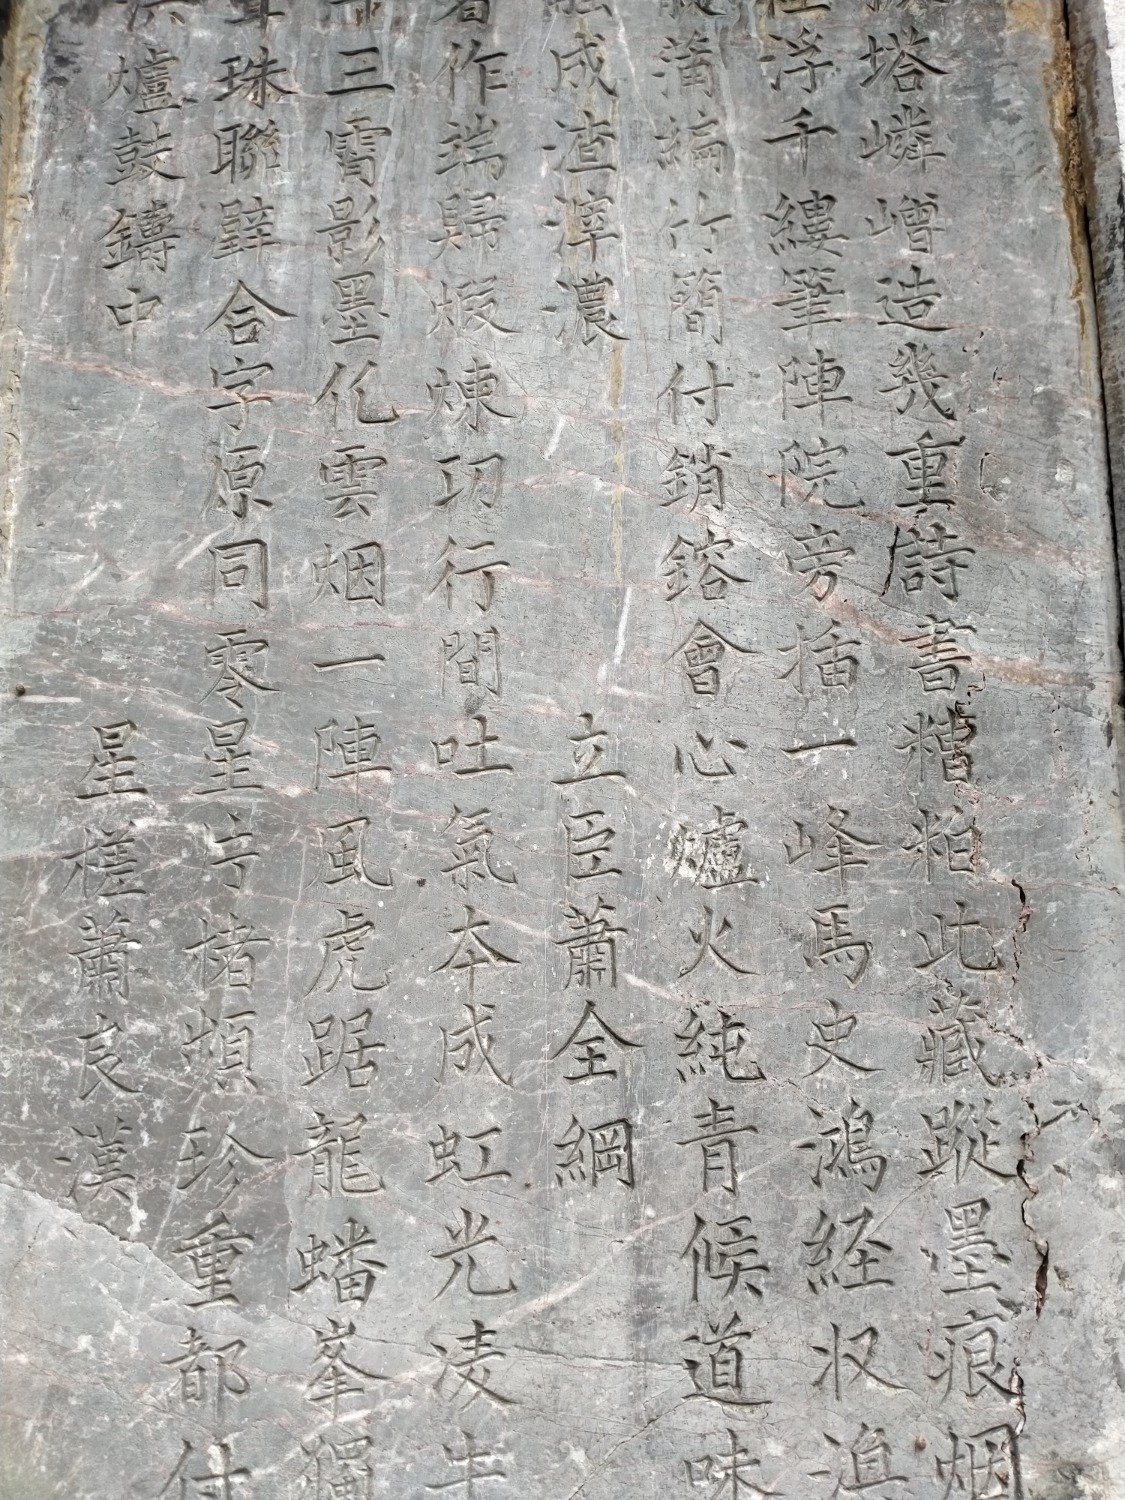 塔嶙嶒造幾重詩書糟粕此藏蹤墨痕烟
浮千縷筆陣院旁插一峰馬史鴻経収漁
蒲編竹簡付銷鎔會心爐火純青候道味
成渣滓濃 立臣蕭全綱
作端歸煅煉功行間吐氣本成虹光凌牛
三霄影墨化雲烟一陣風虎踞龍蟠峯獨
珠聯辭合字原同零星片楮頻珍重都付
爐鼓鑄中 星槎蕭良漢